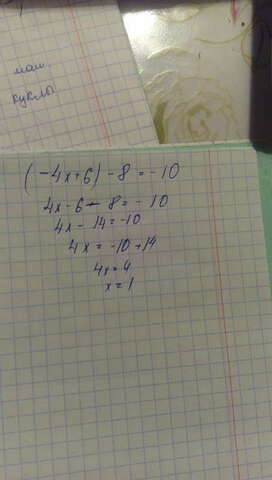 мом.
куклы
(-4x+6)-8=-10
4x-6-8=-10
4x-14=-10
4x=-10+14
4x=4
x=1